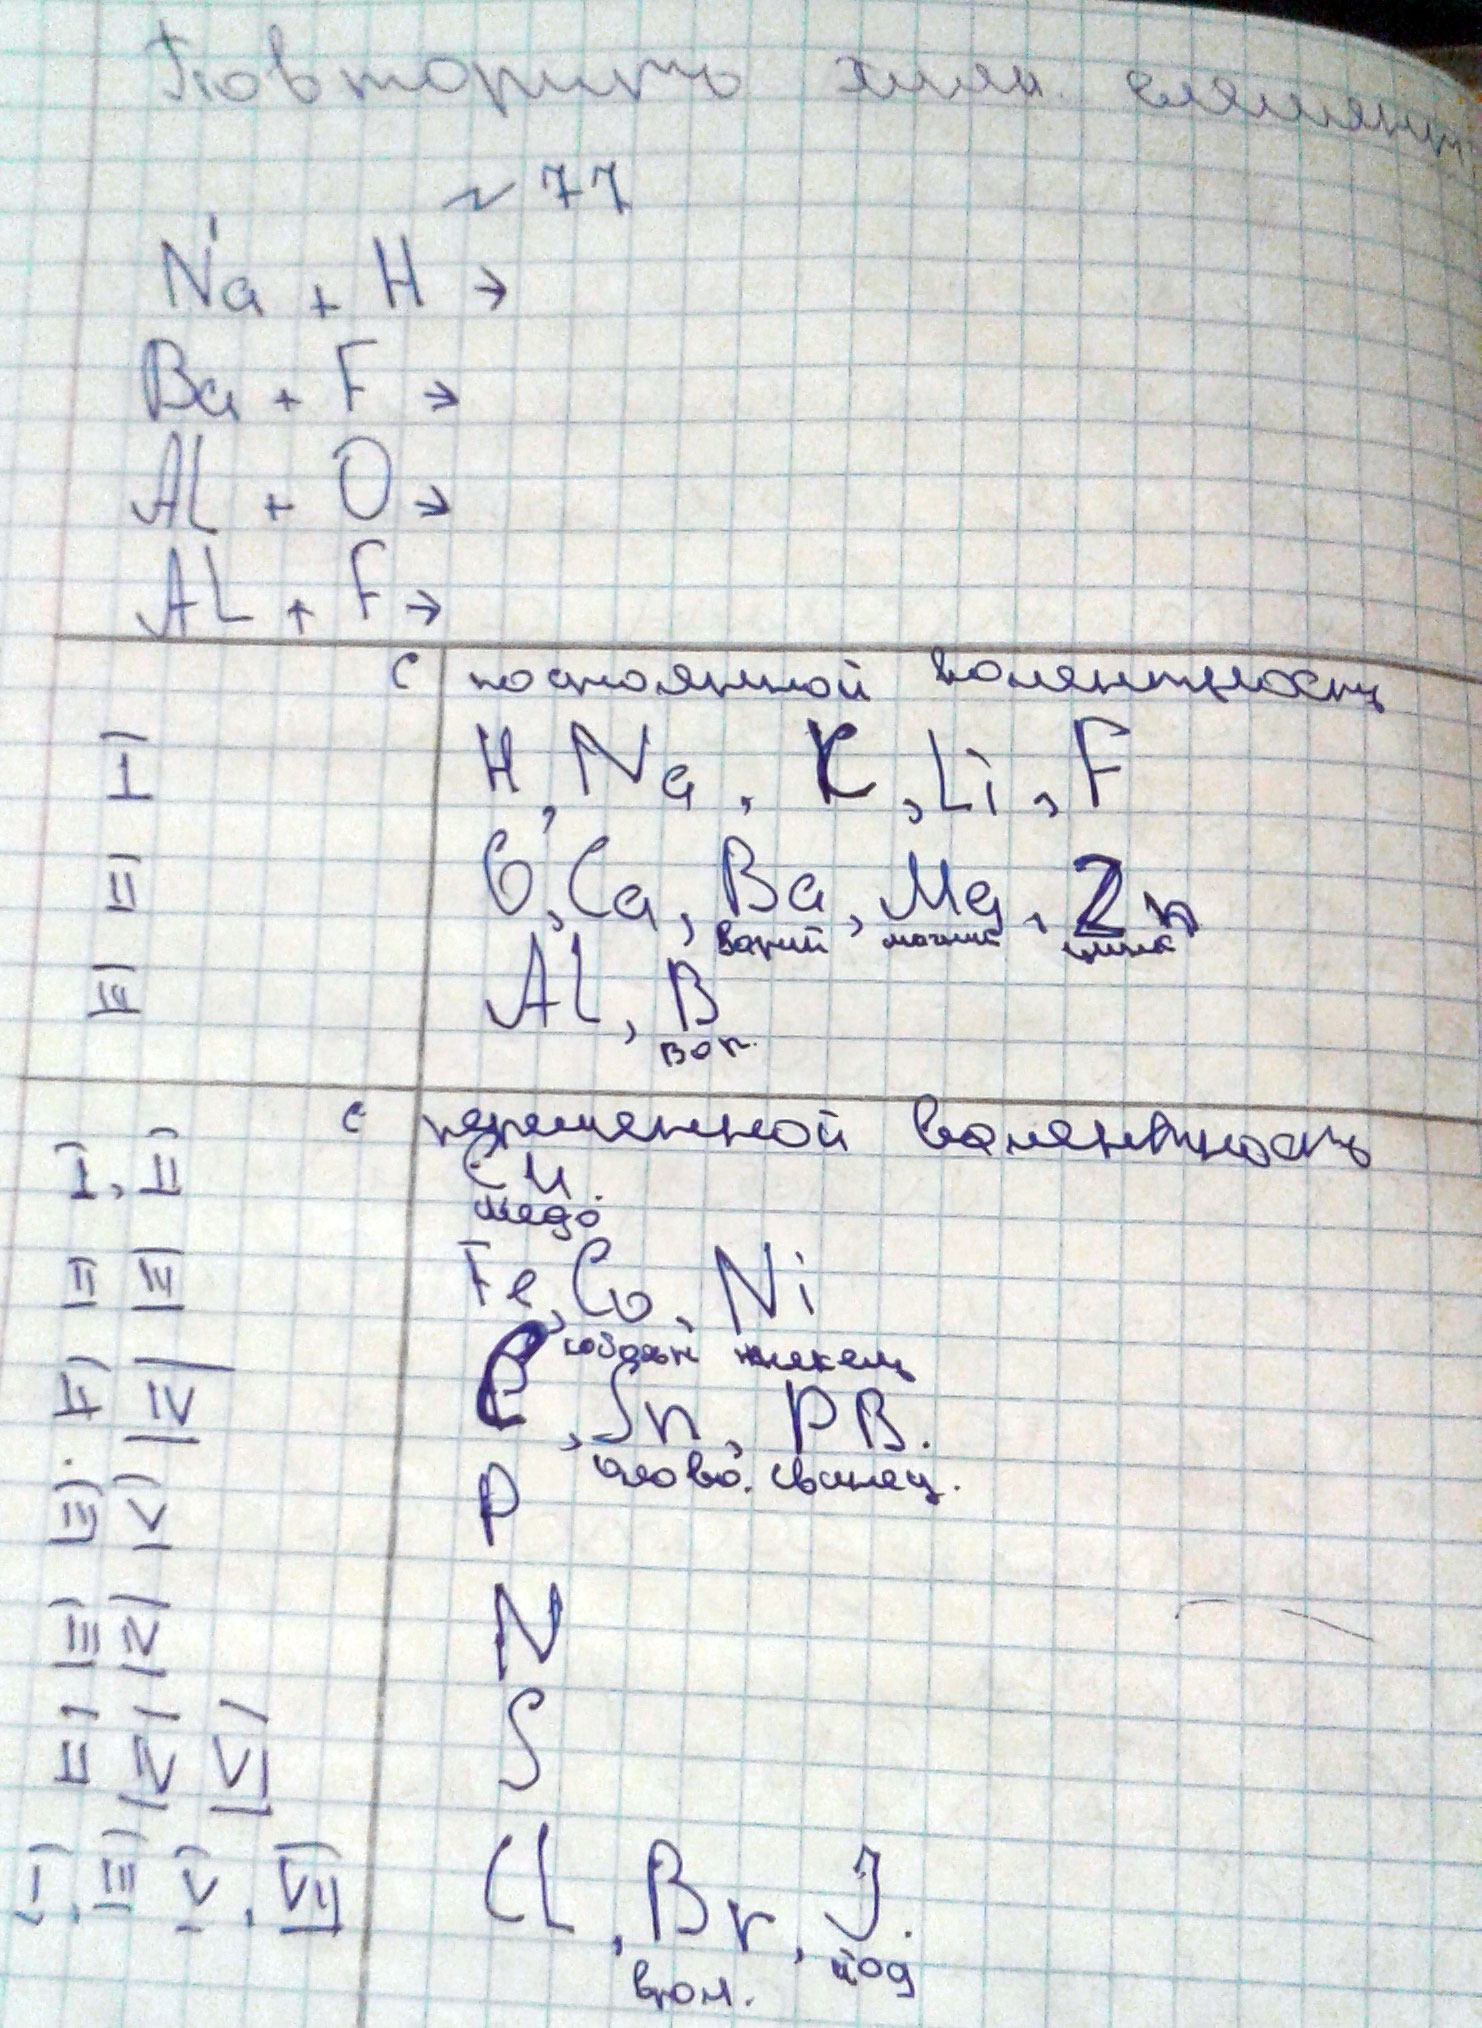 Повторить хим. елемент
~ 77
Na + H →
Ba + F →
Al + O →
Al + F →
с постоянной валентность
I H, Na, K, Li, F
II O, Ca, Ba, Mg, Zn
барий магний цинк
III Al, B
бор.
с переменной валентность
I, II Cu.
медь
II III Fe, Co, Ni
кобальт никель
II IV C, Sn, PB.
олово. свинец.
III V P
III IV N
II IV VI S
I, III V, VII Cl, Br, J.
бром. йод